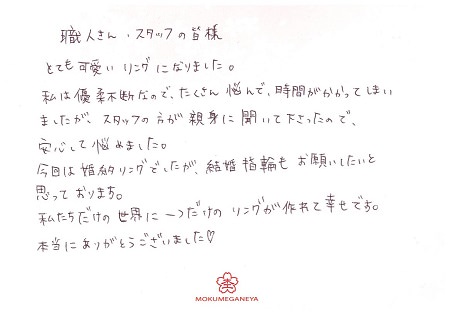 職人さん、スタッフの皆様
とても可愛いリングになりました。
私は優柔不断なので、たくさん悩んで、時間がかかってしまい
ましたが、スタッフの方が親身に聞いて下さったので、
安心して悩めました。
今回は婚約リングでしたが、結婚指輪もお願いしたいと
思っております。
私たちだけの世界に一つだけのリングが作れて幸せです。
本当にありがとうございました♡
MOKUMEGANEYA